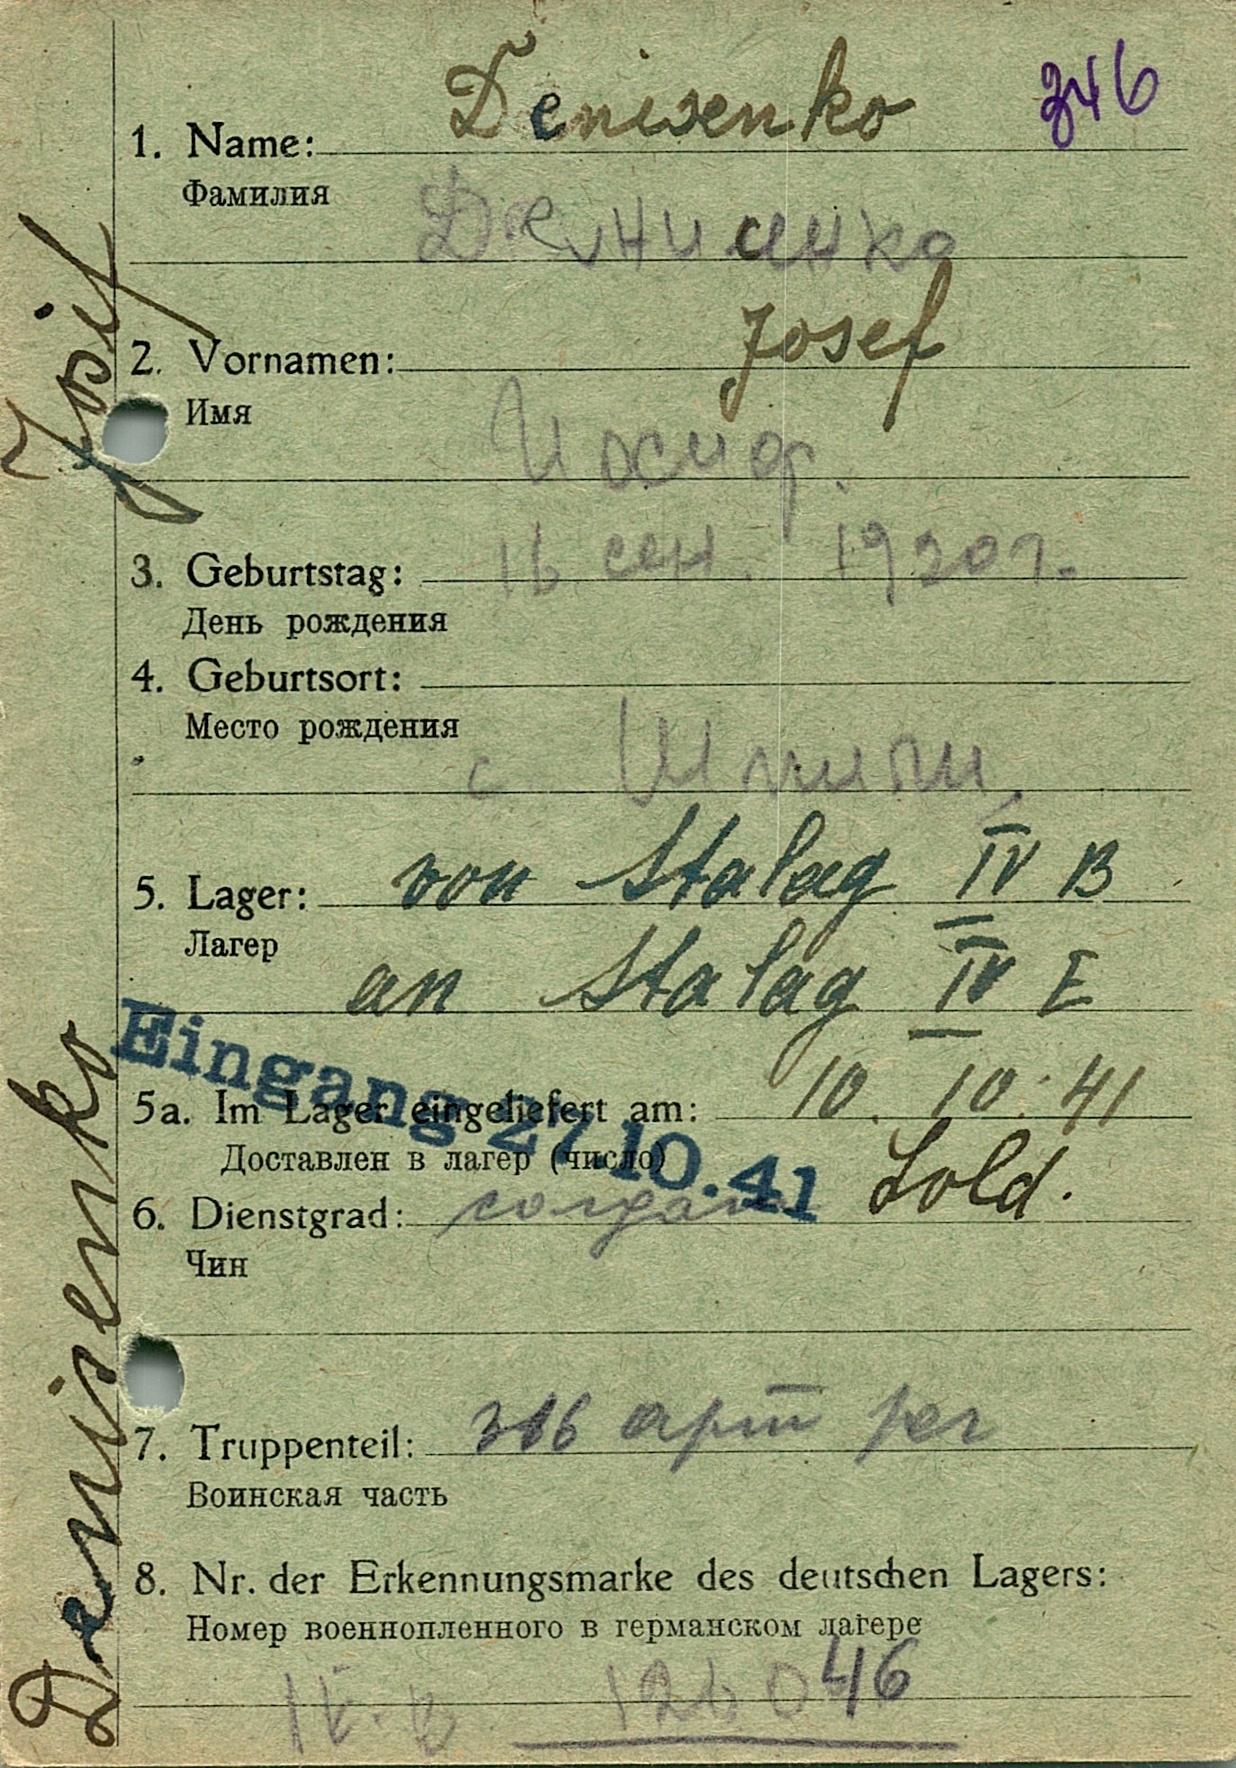 346
Denisenko
1. Name:
Фамилия
Денисенко
Josef
2. Vornamen:
Имя
Иосиф.
3. Geburtstag: 16 сен. 1920 г.
День рождения
4. Geburtsort:
Место рождения
с.
5. Lager: von Stalag IV B
Лагер
an Stalag IV E
Eingang 27.10.41
5a. Im Lager eingeliefert am: 10. 10. 41
Доставлен в лагер (число)
6. Dienstgrad: солдат Sold.
Чин
7. Truppenteil: арт рег
Воинская часть
8. Nr. der Erkennungsmarke des deutschen Lagers:
Номер военнопленного в германском лагере
IV B 126046
Denisenko Josif